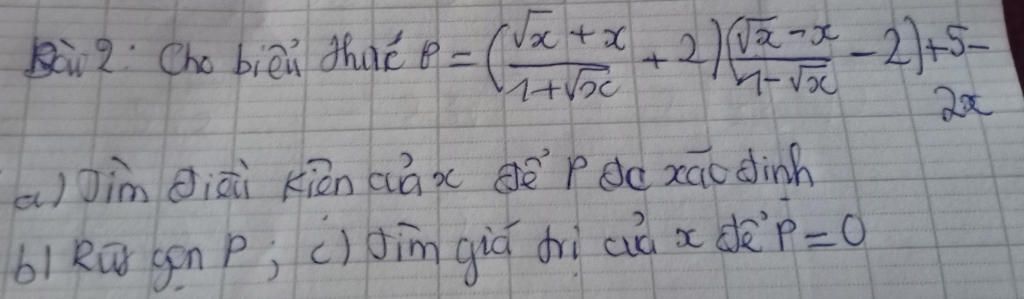 Bài 2: Cho biểu thức P = ((√x + x)/(1+√x) + 2)((√x - x)/(1-√x) - 2) + 5 -
2x
a) Tìm điều kiện của x để P đc xác định
b) Rút gọn P; c) Tìm giá trị của x để P = 0